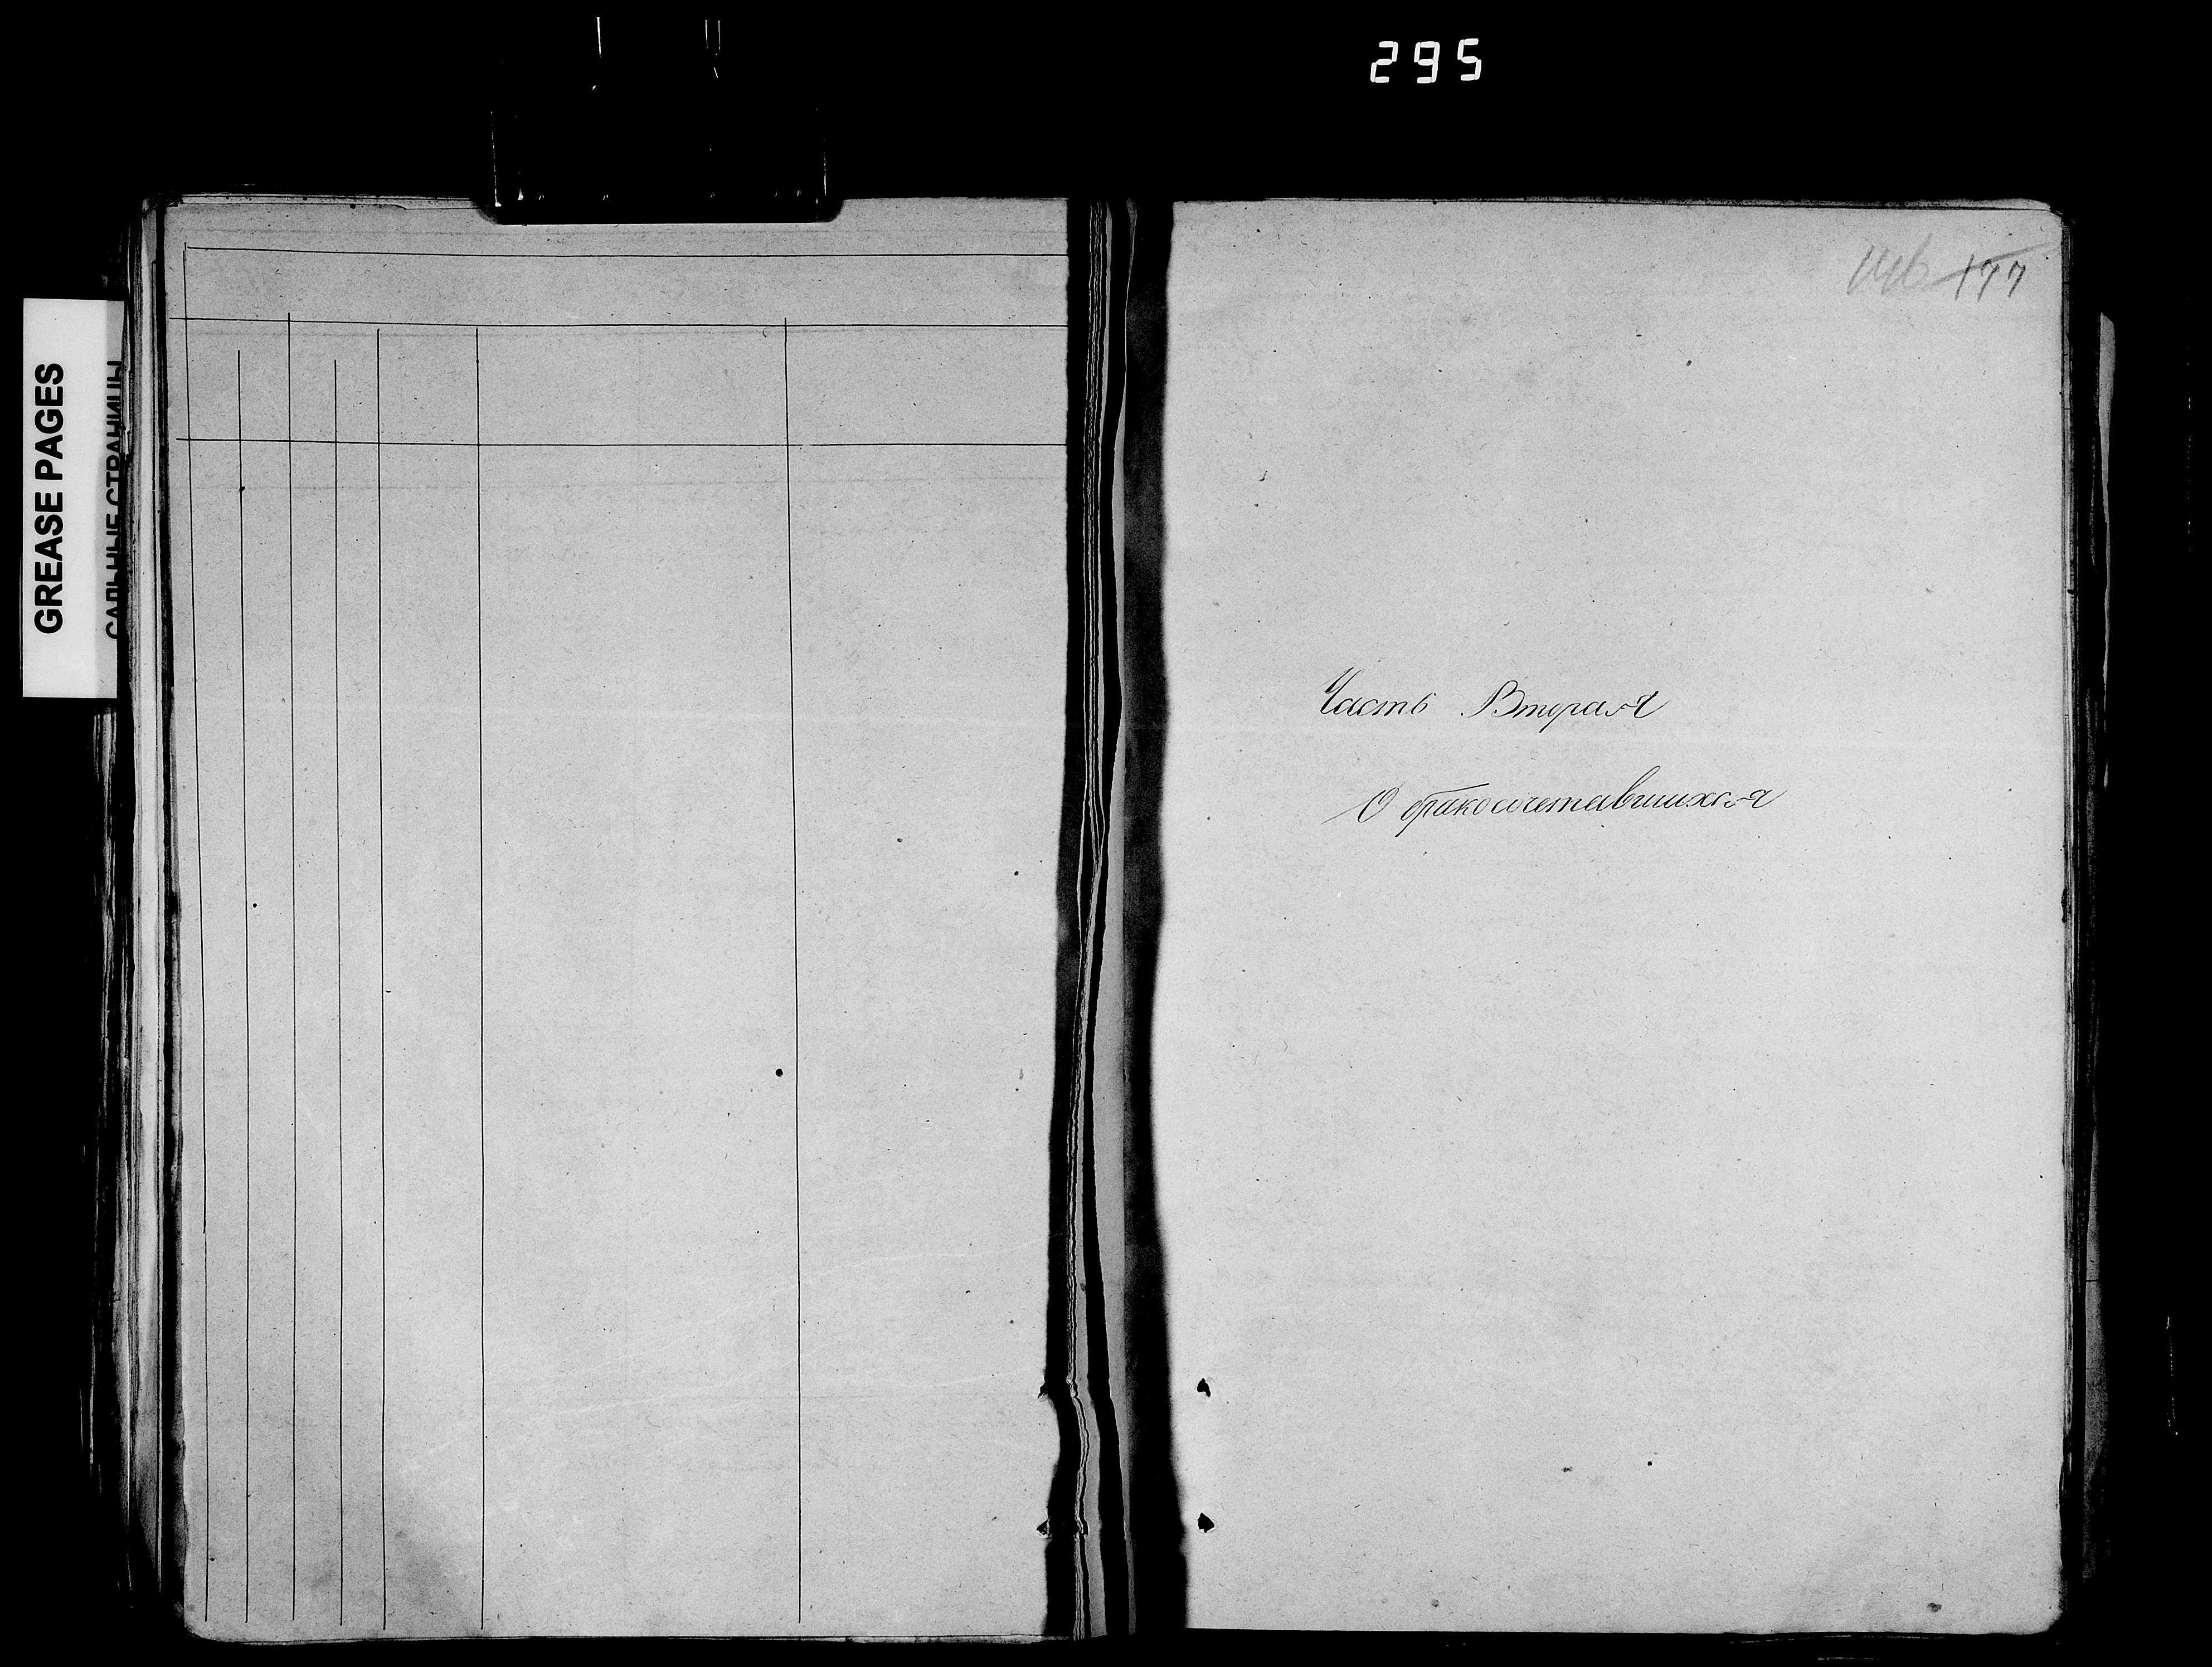 295
GREASE PAGES
САЛЬНЫЕ СТРАНИЦЫ
146 177
Часть Вторая
О бракосочетавшихся